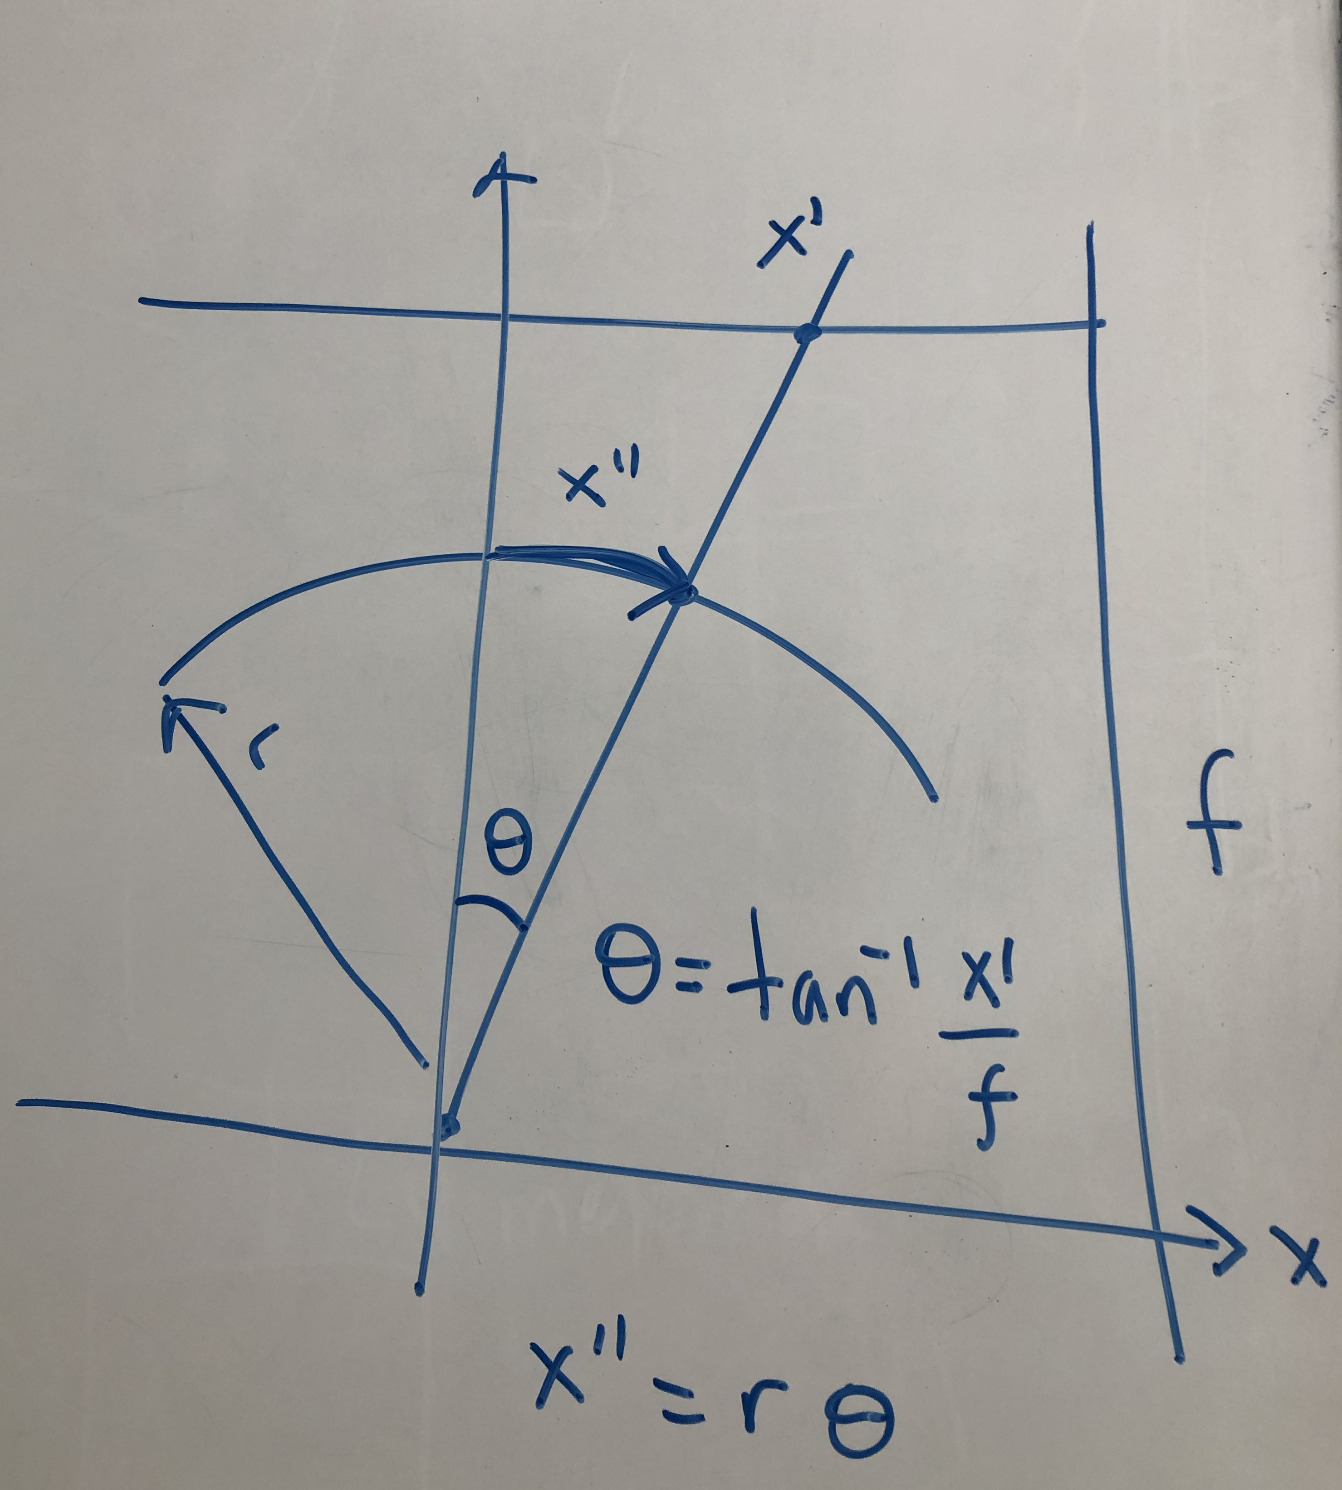 x'
x"
r
θ
f
θ = tan⁻¹ x'/f
x
x" = r θ